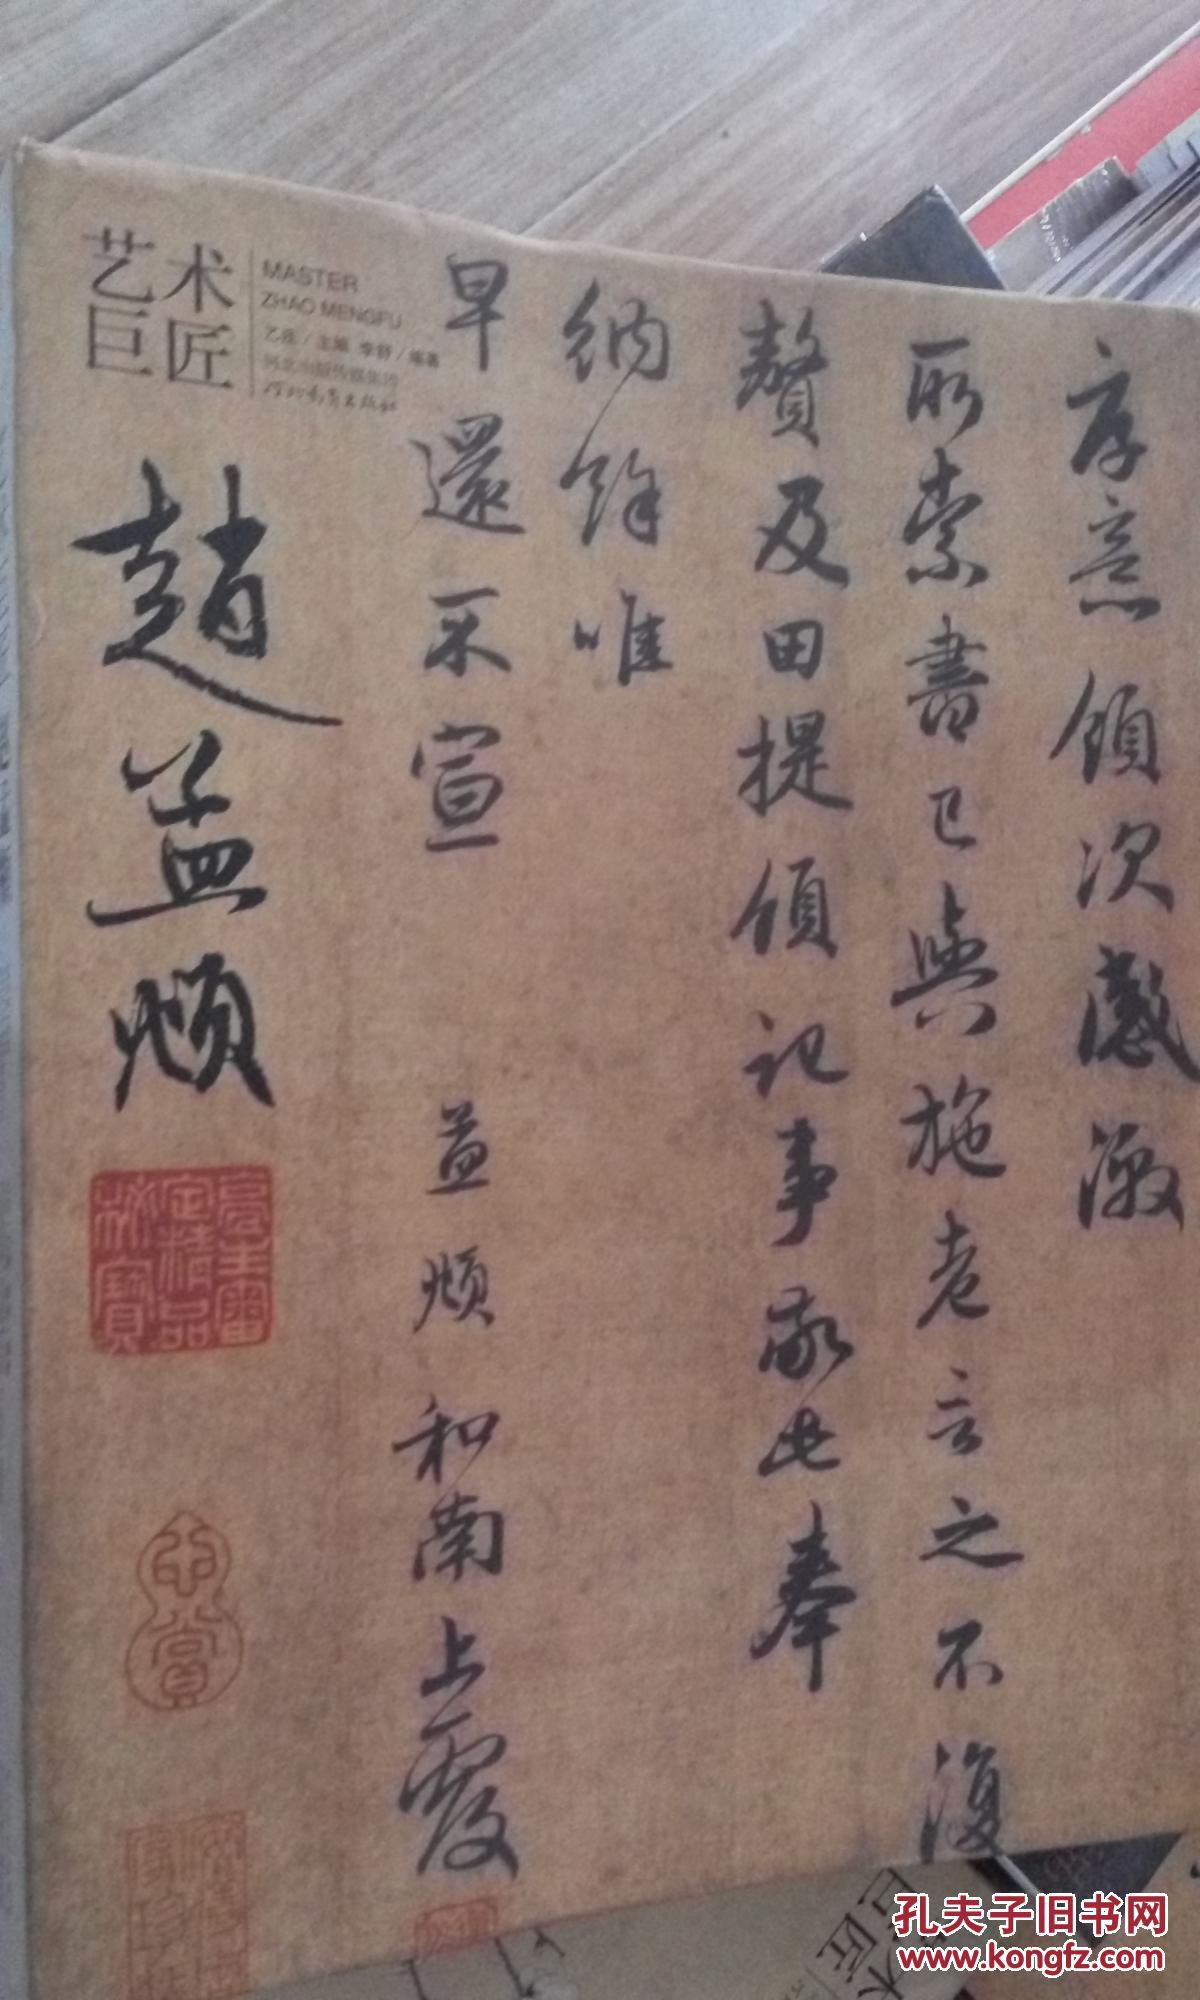 艺术
巨匠
MASTER
ZHAO MENGFU
艺庄/主编 李舒/编著
河北出版传媒集团
河北教育出版社
趙孟頫
厚意領次感激
所索書已與施老言之不復
贅及田提領記事敬此奉
納餘唯
早還不宣
孟頫和南上覆
孔夫子旧书网
www.kongfz.com